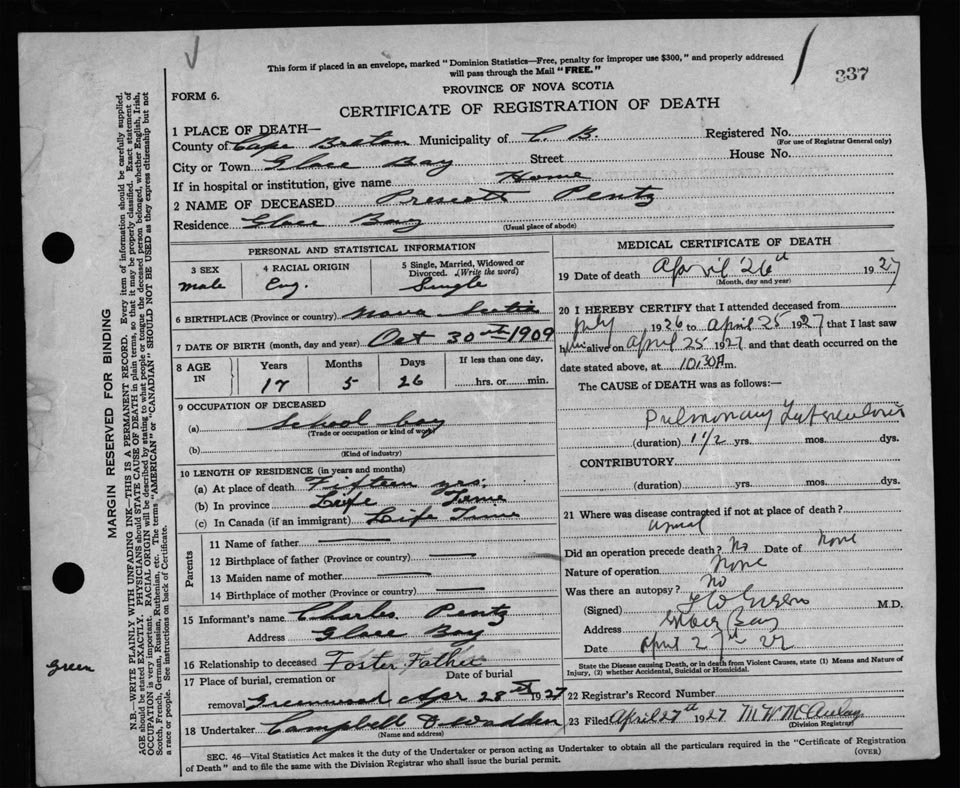 This form if placed in an envelope, marked "Dominion Statistics—Free, penalty for improper use $300," and properly addressed
will pass through the Mail "FREE."
337
PROVINCE OF NOVA SCOTIA
FORM 6.
CERTIFICATE OF REGISTRATION OF DEATH
1 PLACE OF DEATH—
County of Cape Breton Municipality of C. B. Registered No.
(For use of Registrar General only)
City or Town Glace Bay Street House No.
If in hospital or institution, give name Home
2 NAME OF DECEASED Prescott Pentz
Residence Glace Bay
(Usual place of abode)
PERSONAL AND STATISTICAL INFORMATION
3 SEX 4 RACIAL ORIGIN 5 Single, Married, Widowed or Divorced. (Write the word)
male Eng. Single
6 BIRTHPLACE (Province or country) Nova Scotia
7 DATE OF BIRTH (month, day and year) Oct 30th 1909
8 AGE IN Years Months Days If less than one day,
17 5 26 hrs. or min.
9 OCCUPATION OF DECEASED
(a) School boy
(Trade or occupation or kind of work)
(b)
(Kind of industry)
10 LENGTH OF RESIDENCE (in years and months)
(a) At place of death Fifteen yrs.
(b) In province Life Time
(c) In Canada (if an immigrant) Life Time
Parents
11 Name of father
12 Birthplace of father (Province or country)
13 Maiden name of mother
14 Birthplace of mother (Province or country)
15 Informant's name Charles Pentz
Address Glace Bay
16 Relationship to deceased Foster Father
17 Place of burial, cremation or Date of burial
removal Greenwood Apr 28th 1927
18 Undertaker Campbell & Wadden
(Name and address)
MEDICAL CERTIFICATE OF DEATH
19 Date of death April 26th 1927
(Month, day and year)
20 I HEREBY CERTIFY that I attended deceased from
July 1926 to April 25 1927 that I last saw
him alive on April 25 1927 and that death occurred on the
date stated above, at 10.30 A m.
The CAUSE OF DEATH was as follows:—
Pulmonary Tuberculosis
(duration) 1 1/2 yrs. mos. dys.
CONTRIBUTORY.
(duration) yrs. mos. dys.
21 Where was disease contracted if not at place of death?
Did an operation precede death? No Date of None
Nature of operation None
Was there an autopsy? No
(Signed) M.D.
Address Glace Bay
Date April 27th 27
State the Disease causing Death, or in death from Violent Causes, state (1) Means and Nature of
Injury, (2) whether Accidental, Suicidal or Homicidal.
22 Registrar's Record Number
23 Filed April 27th 1927 M W McAulay
(Division Registrar)
SEC. 46—Vital Statistics Act makes it the duty of the Undertaker or person acting as Undertaker to obtain all the particulars required in the "Certificate of Registration
of Death" and to file the same with the Division Registrar who shall issue the burial permit. (OVER)
MARGIN RESERVED FOR BINDING
N.B.—WRITE PLAINLY WITH UNFADING INK—THIS IS A PERMANENT RECORD. Every item of information should be carefully supplied.
AGE should be stated EXACTLY. PHYSICIANS should STATE CAUSE OF DEATH in plain terms, so that it may be properly classified. Exact statement of
OCCUPATION is very important. RACIAL ORIGIN will be described by stating to what people or tongue the deceased person belonged, whether English, Irish,
Scotch, French, German, Russian, Ruthenian, etc. The terms "AMERICAN" or "CANADIAN" SHOULD NOT BE USED as they express citizenship but not
a race or people. See instructions on back of Certificate.
Green